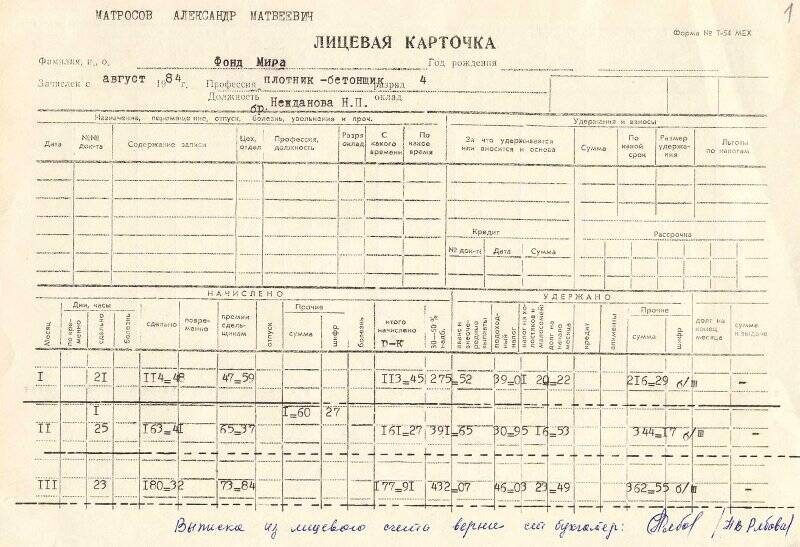 1
МАТРОСОВ АЛЕКСАНДР МАТВЕЕВИЧ
Форма № Т-54 МЕХ
ЛИЦЕВАЯ КАРТОЧКА
Фамилия, и., о. Фонд Мира Год рождения
Зачислен с август 1984г. Профессия плотник-бетонщик разряд 4
Должность бр. Нежданова Н.П. оклад
Назначения, перемещение, отпуск, болезнь, увольнения и проч. Удержания и взносы
Дата №№ док-та Содержание записи Цех, отдел Профессия, должность Разряд оклад С какого времени По какое время За что удерживается или вносится и основа Сумма По какой срок Размер удержания Льготы по налогам
Кредит Рассрочка
№ док-та Дата Сумма
НАЧИСЛЕНО УДЕРЖАНО
Месяц Дни, часы сдельно повременно премии сдельщикам отпуск Прочие болезнь итого начислено р-к 30-50 % подоходный налог долг на начало месяца кредит алименты Прочие долг на конец месяца сумма к выдаче
сдельно болезнь сумма шифр сумма шифр
I 21 114=48 47=59 113=45 275=52 39=01 20=22 216=29 б/ш -
1 1=60 27
II 25 163=41 65=37 161=27 391=65 30=95 16=53 344=17 б/ш -
III 23 180=32 73=84 177=91 432=07 46=03 23=49 362=55 б/ш -
Выписка из лицевого счета верна ст бухгалтер: /Рябова/